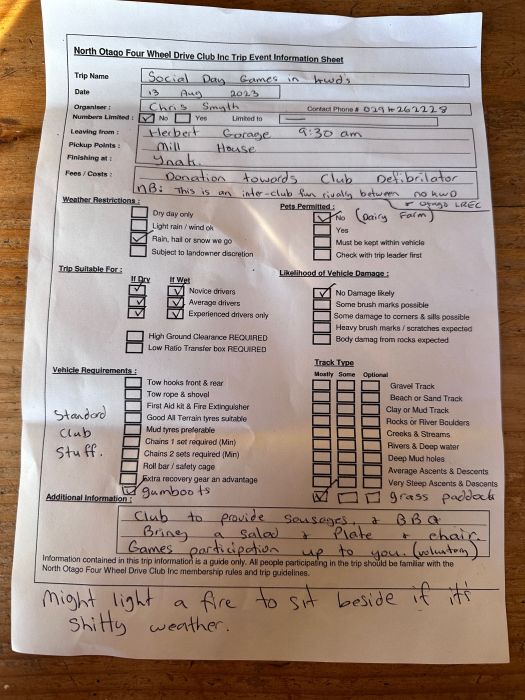 North Otago Four Wheel Drive Club Inc Trip Event Information Sheet
Trip Name Social Day Games in 4wds
Date 13 Aug 2023
Organiser : Chris Smyth Contact Phone # 029 4262228
Numbers Limited : No Yes Limited to
Leaving from : Herbert Gorage 9:30 am
Pickup Points : Mill House
Finishing at :
Fees / Costs : Donation towards Club Defibrilator
NB: This is an inter-club fun rivaly between no4WD
& Otago LREC
Weather Restrictions :
Dry day only
Light rain / wind ok
Rain, hail or snow we go
Subject to landowner discretion
Pets Permitted :
No (Dairy Farm)
Yes
Must be kept within vehicle
Check with trip leader first
Trip Suitable For :
If Dry If Wet
Novice drivers
Average drivers
Experienced drivers only
High Ground Clearance REQUIRED
Low Ratio Transfer box REQUIRED
Likelihood of Vehicle Damage :
No Damage likely
Some brush marks possible
Some damage to corners & sills possible
Heavy brush marks / scratches expected
Body damag from rocks expected
Vehicle Requirements :
Tow hooks front & rear
Tow rope & shovel
First Aid kit & Fire Extinguisher
Good All Terrain tyres suitable
Mud tyres preferable
Chains 1 set required (Min)
Chains 2 sets required (Min)
Roll bar / safety cage
Extra recovery gear an advantage
gumboots
Standard
Club
Stuff.
Track Type
Mostly Some Optional
Gravel Track
Beach or Sand Track
Clay or Mud Track
Rocks or River Boulders
Creeks & Streams
Rivers & Deep water
Deep Mud holes
Average Ascents & Descents
Very Steep Ascents & Descents
grass paddock
Additional Information :
Club to provide Sausages, & BBQ
Bring a salad + Plate + chair.
Games participation up to you. (voluntary)
Information contained in this trip information is a guide only. All people participating in the trip should be familiar with the
North Otago Four Wheel Drive Club Inc membership rules and trip guidelines.
Might light a fire to sit beside if it's
shitty weather.